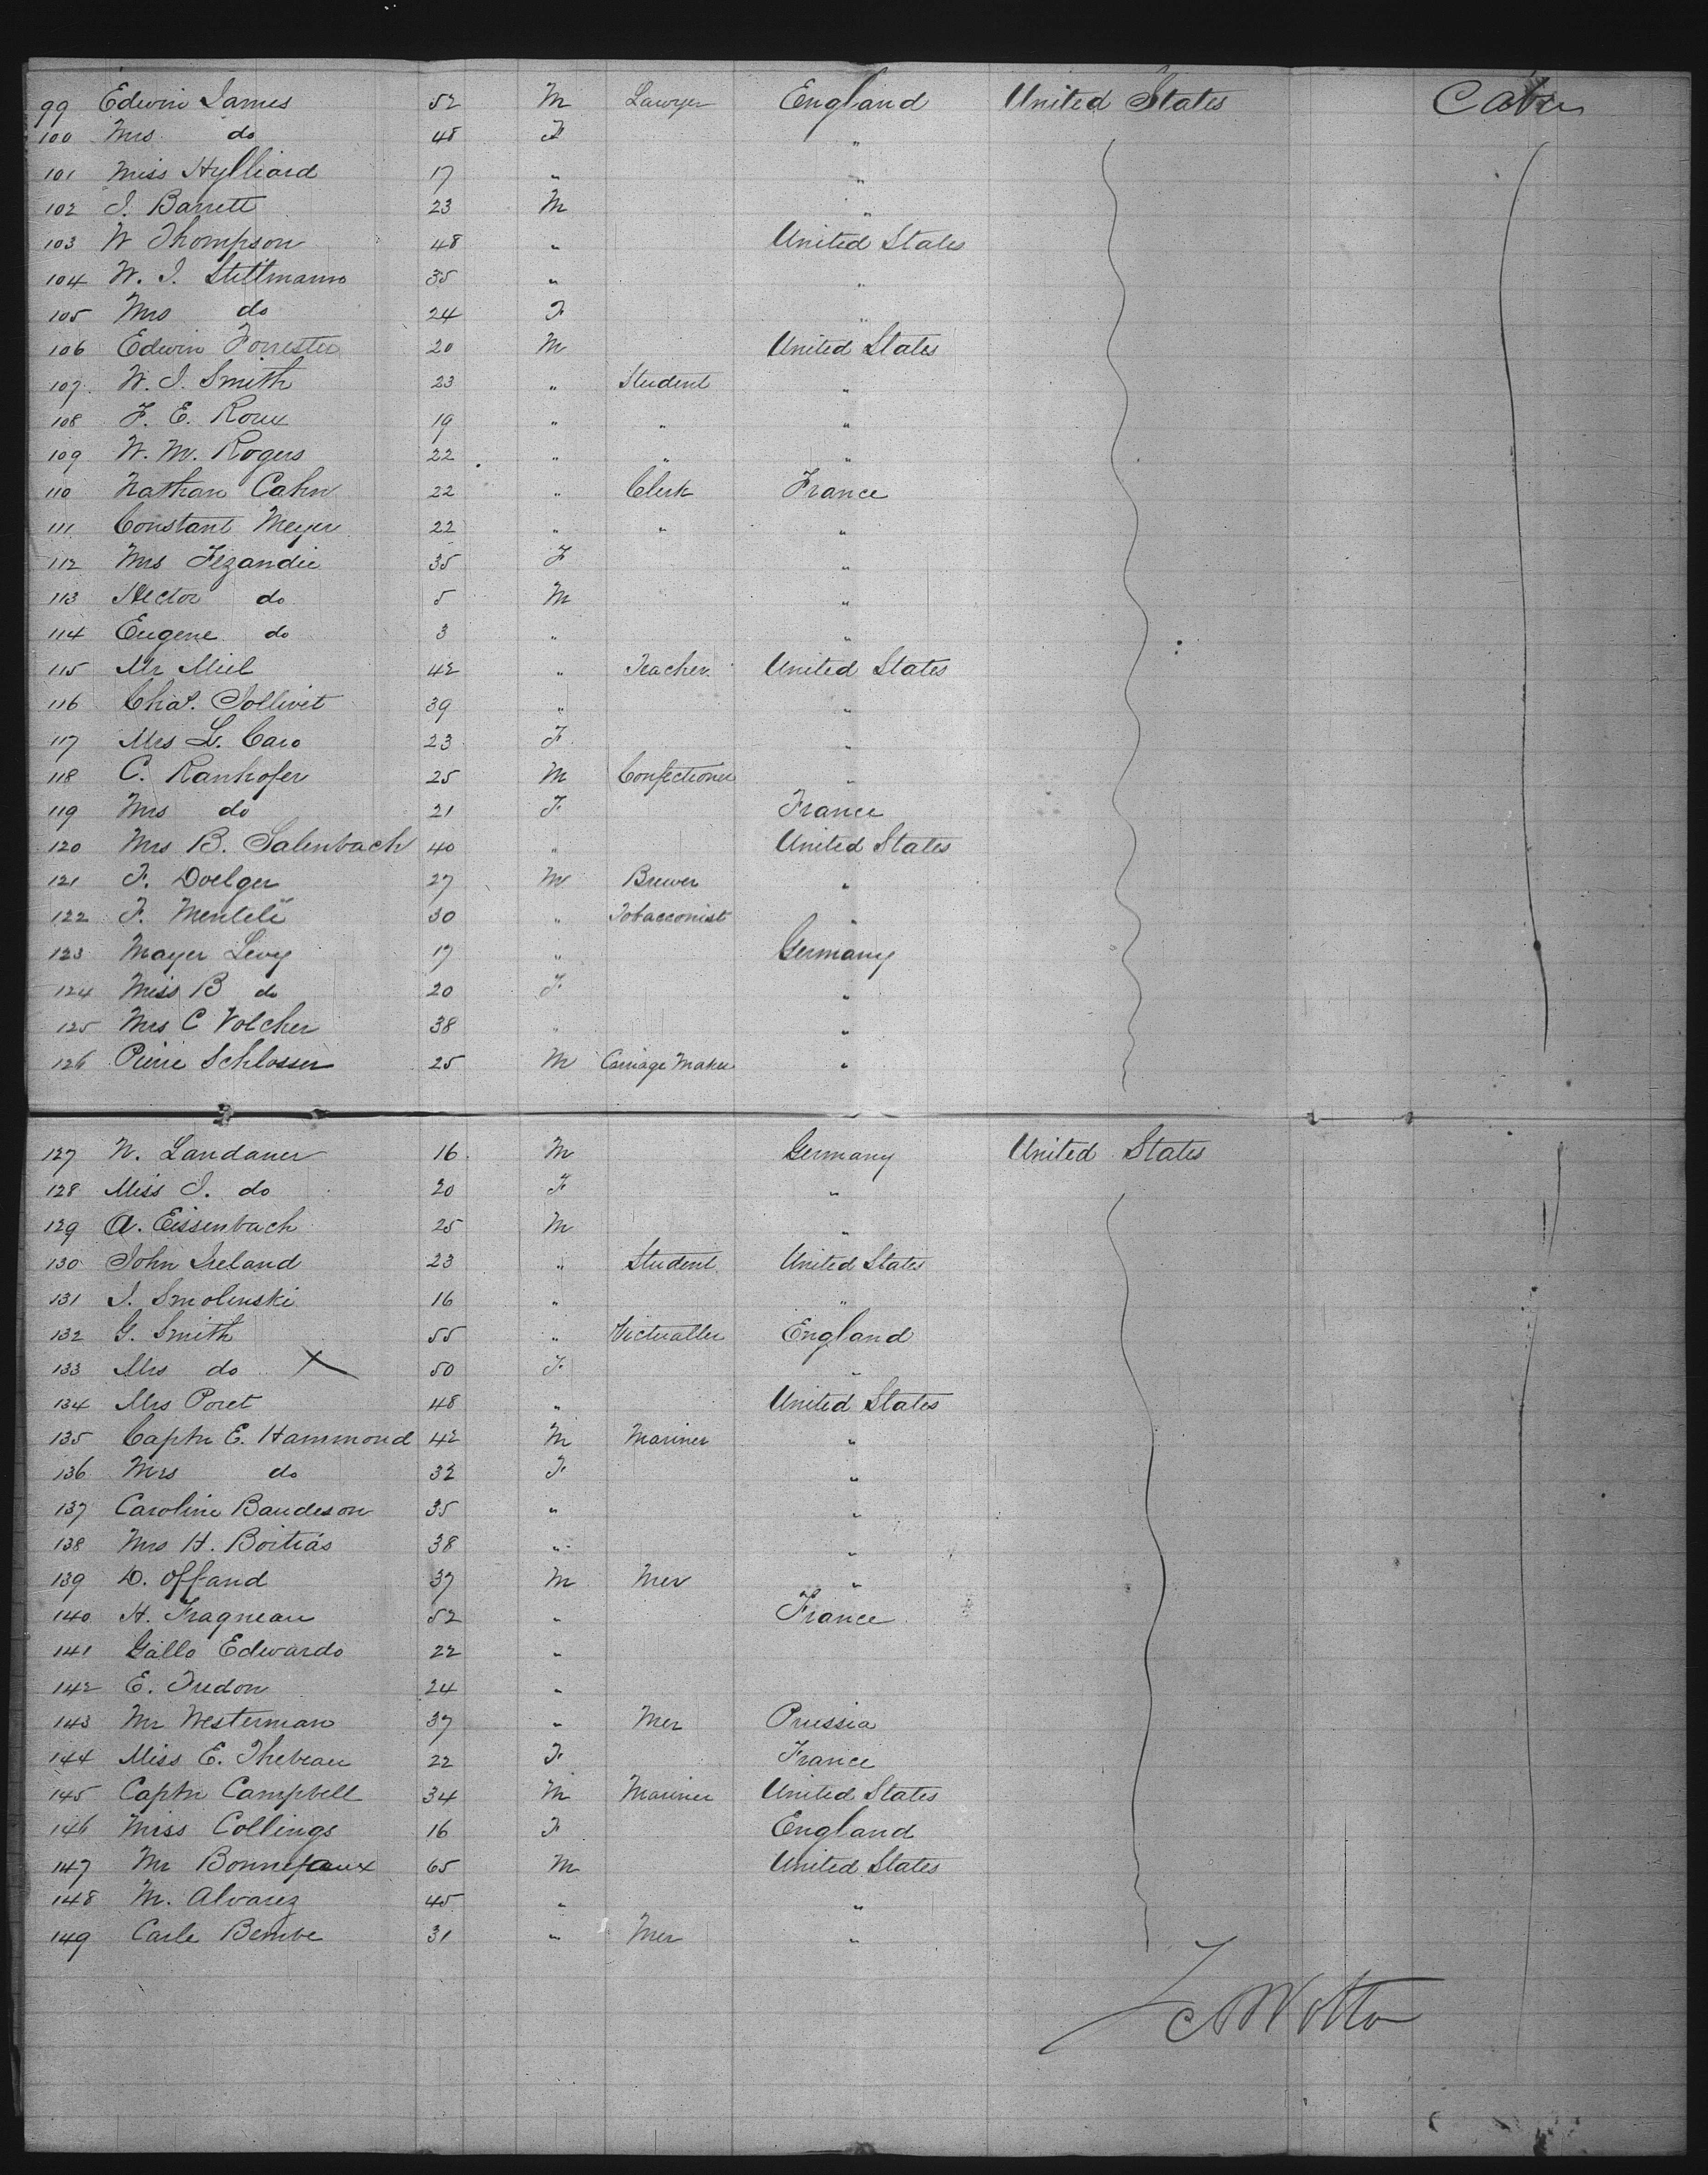 99 Edwin James 52 M Lawyer England United States Cabin
100 Mrs do 48 F "
101 Miss Hylliard 17 " "
102 J. Barrett 23 M "
103 W Thompson 48 " United States
104 W. J. Stillmann 35 " "
105 Mrs do 24 F "
106 Edwin Forrester 20 M United States
107 W. J. Smith 23 " Student "
108 F. E. Roux 19 " " "
109 W. M. Rogers 22 " " "
110 Nathan Cahn 22 " Clerk France
111 Constant Meyer 22 " " "
112 Mrs Fezandie 35 F "
113 Hector do 5 M "
114 Eugene do 3 " "
115 Mr Miel 42 " Teacher United States
116 Chas. Jollivet 39 " "
117 Mrs L. Caro 23 F "
118 C. Ranhofer 25 M Confectioner "
119 Mrs do 21 F France
120 Mrs B. Salenbach 40 " United States
121 F. Doelger 27 M Brewer "
122 F. Mentelé 30 " Tobacconist "
123 Mayer Levy 17 " Germany
124 Miss B do 20 F "
125 Mrs C Volcher 38 " "
126 Pierre Schlosser 25 M Carriage Maker "
127 N. Landauer 16 M Germany United States
128 Miss J. do 20 F "
129 A. Eissenbach 25 M "
130 John Ireland 23 " Student United States
131 J. Smolenski 16 " "
132 G. Smith 55 " Victualler England
133 Mrs do X 50 F "
134 Mrs Poret 48 " United States
135 Captn E. Hammond 42 M Mariner "
136 Mrs do 32 F "
137 Caroline Baudeson 35 " "
138 Mrs H. Boitias 38 " "
139 D. Offand 37 M Mer "
140 H. Fragneau 52 " France
141 Gallo Edwardo 22 "
142 E. Tredon 24 "
143 Mr Westerman 37 " Mer Prussia
144 Miss E. Thebeau 22 F France
145 Captn Campbell 34 M Mariner United States
146 Miss Collings 16 F England
147 Mr Bonnefaux 65 M United States
148 M. Alvarez 45 " "
149 Carle Bembe 31 " Mer "